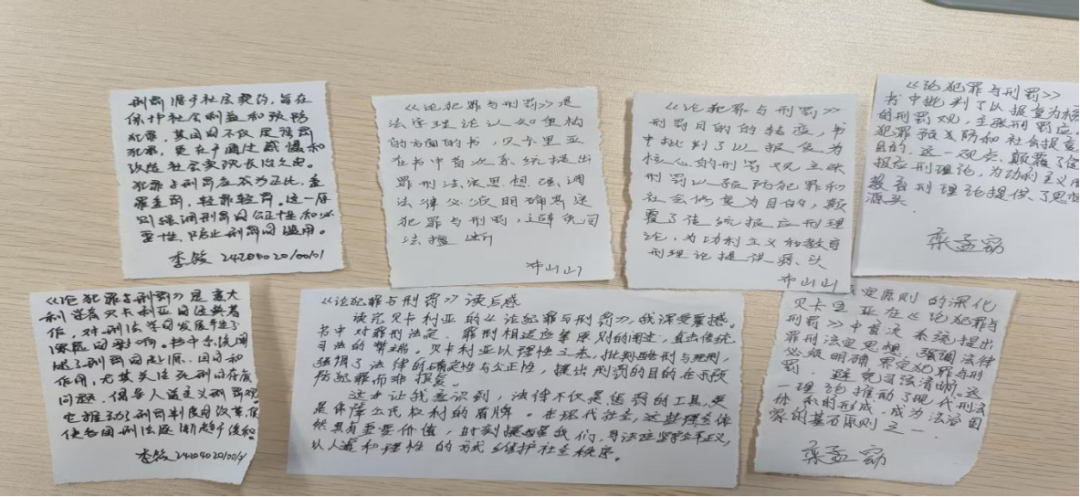 刑罚源于社会契约，旨在
保护社会利益和预防
犯罪，其目的不仅是惩罚
犯罪，更在于通过威慑和
改造社会实现长治久安。
犯罪与刑罚应成为正比，重
罪重刑，轻罪轻罚。这一原
则强调刑罚的公正性和必
要性，防止刑罚的滥用。
《论犯罪与刑罚》是
法学理论认知重构
的方面的书，贝卡里亚
在书中首次系统提出
罪刑法法思想，强调
法律必须明确界定
犯罪与刑罚，避免司
法擅断
《论犯罪与刑罚》
刑罚目的的转变，书
中批判了以报复为
核心的刑罚观主张
刑罚以预防犯罪和
社会修复为目的，颠
覆了传统报应刑理
论，为功利主义和教育
刑理论提供源头
《论犯罪与刑罚》
书中批判了以报复为核
的刑罚观，主张刑罚应
犯罪预防和社会
目的，这一观点，颠覆了传
报应刑理论，为功利主义
教育刑理论提供了思想
源头
《论犯罪与刑罚》是意大
利学者贝卡利亚的经典著
作，对刑法学的发展产生了
深远的影响。书中系统阐
述了刑罚的起源、目的和
作用，尤其关注死刑的存废
问题，倡导人道主义刑罚观
它推动了刑罚制度的改革，
使各国刑法逐渐趋于缓和
《论犯罪与刑罚》读后感
读完贝卡利亚的《论犯罪与刑罚》，我深受震撼。
书中对罪刑法定、罪刑相适应等原则的阐述，直击传统
司法的弊端。贝卡利亚以理性之本，批判酷刑与死刑，
强调了法律的确定性与公正性，提出刑罚的目的在于预
防犯罪而非报复。
这本让我意识到，法律不仅是惩罚的工具，更
是保障公民权利的盾牌。在现代社会，这些理念依
然具有重要价值，时刻提醒我们，司法应坚守公平正义，
以人道和理性的方式维护社会秩序。
定原则的深化
贝卡里亚在《论犯罪与
刑罚》中首次系统提出
罪刑法定思想，强调法律
必须明确界定犯罪与刑
罚，避免司法擅断。这
一理论推动了现代刑法
体和的形成，成为法治国
家的基石原则之一。